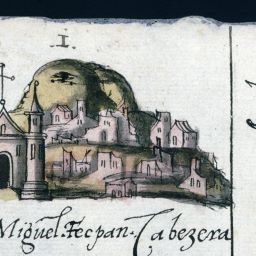 1.
Miguel. tecpan. Cabezera